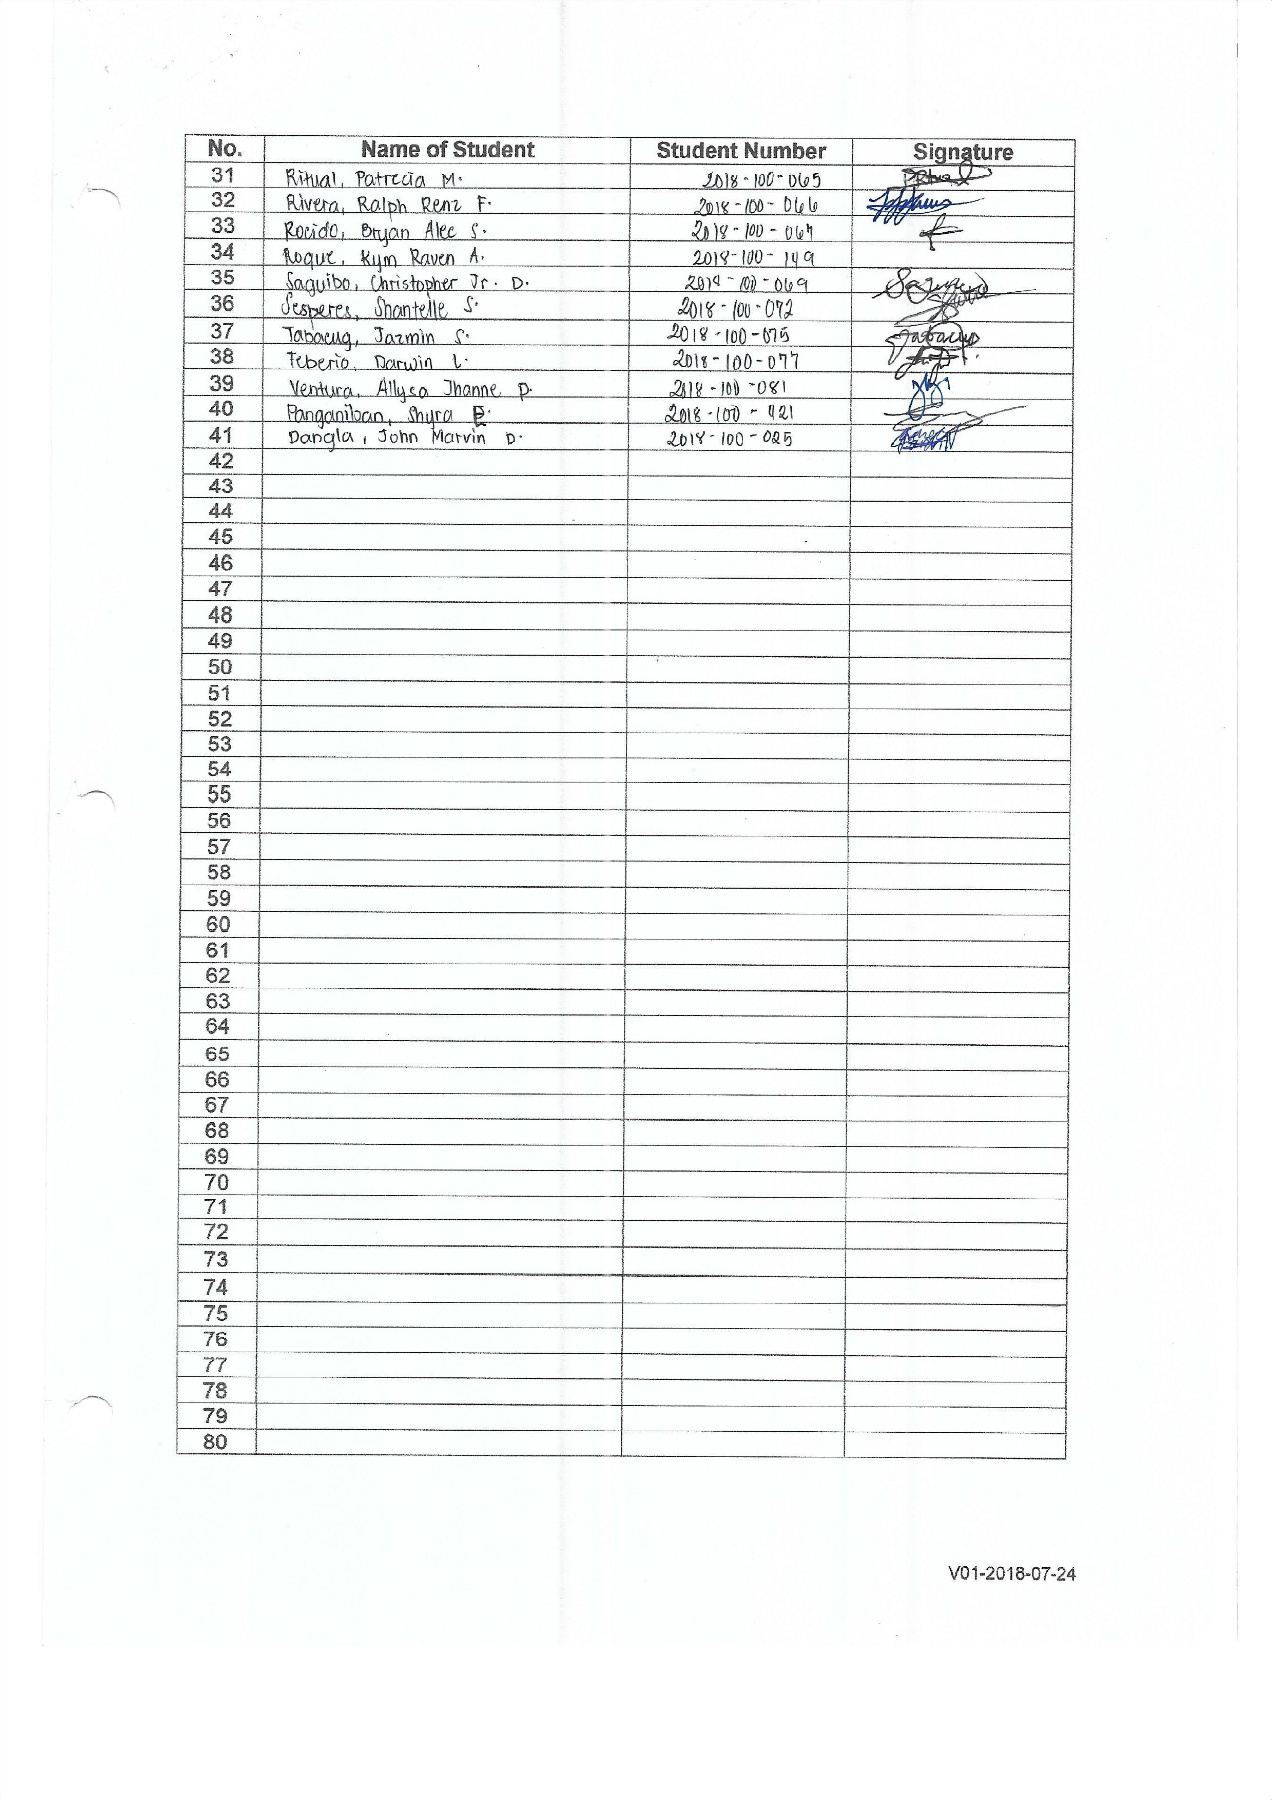 No. Name of Student Student Number Signature
31 Ritual, Patrecia M. 2018-100-065
32 Rivera, Ralph Renz F. 2018-100-066
33 Rocido, Bryan Alec S. 2018-100-067
34 Roque, Kym Raven A. 2018-100-149
35 Saguibo, Christopher Jr. D. 2018-100-069
36 Sesperes, Shantelle S. 2018-100-072
37 Tabacug, Jazmin S. 2018-100-075 Tabacug
38 Teberio, Darwin L. 2018-100-077
39 Ventura, Allysa Jhanne P. 2018-100-081
40 Panganiban, Shyra E. 2018-100-421
41 Dangla, John Marvin D. 2018-100-025
42
43
44
45
46
47
48
49
50
51
52
53
54
55
56
57
58
59
60
61
62
63
64
65
66
67
68
69
70
71
72
73
74
75
76
77
78
79
80
V01-2018-07-24